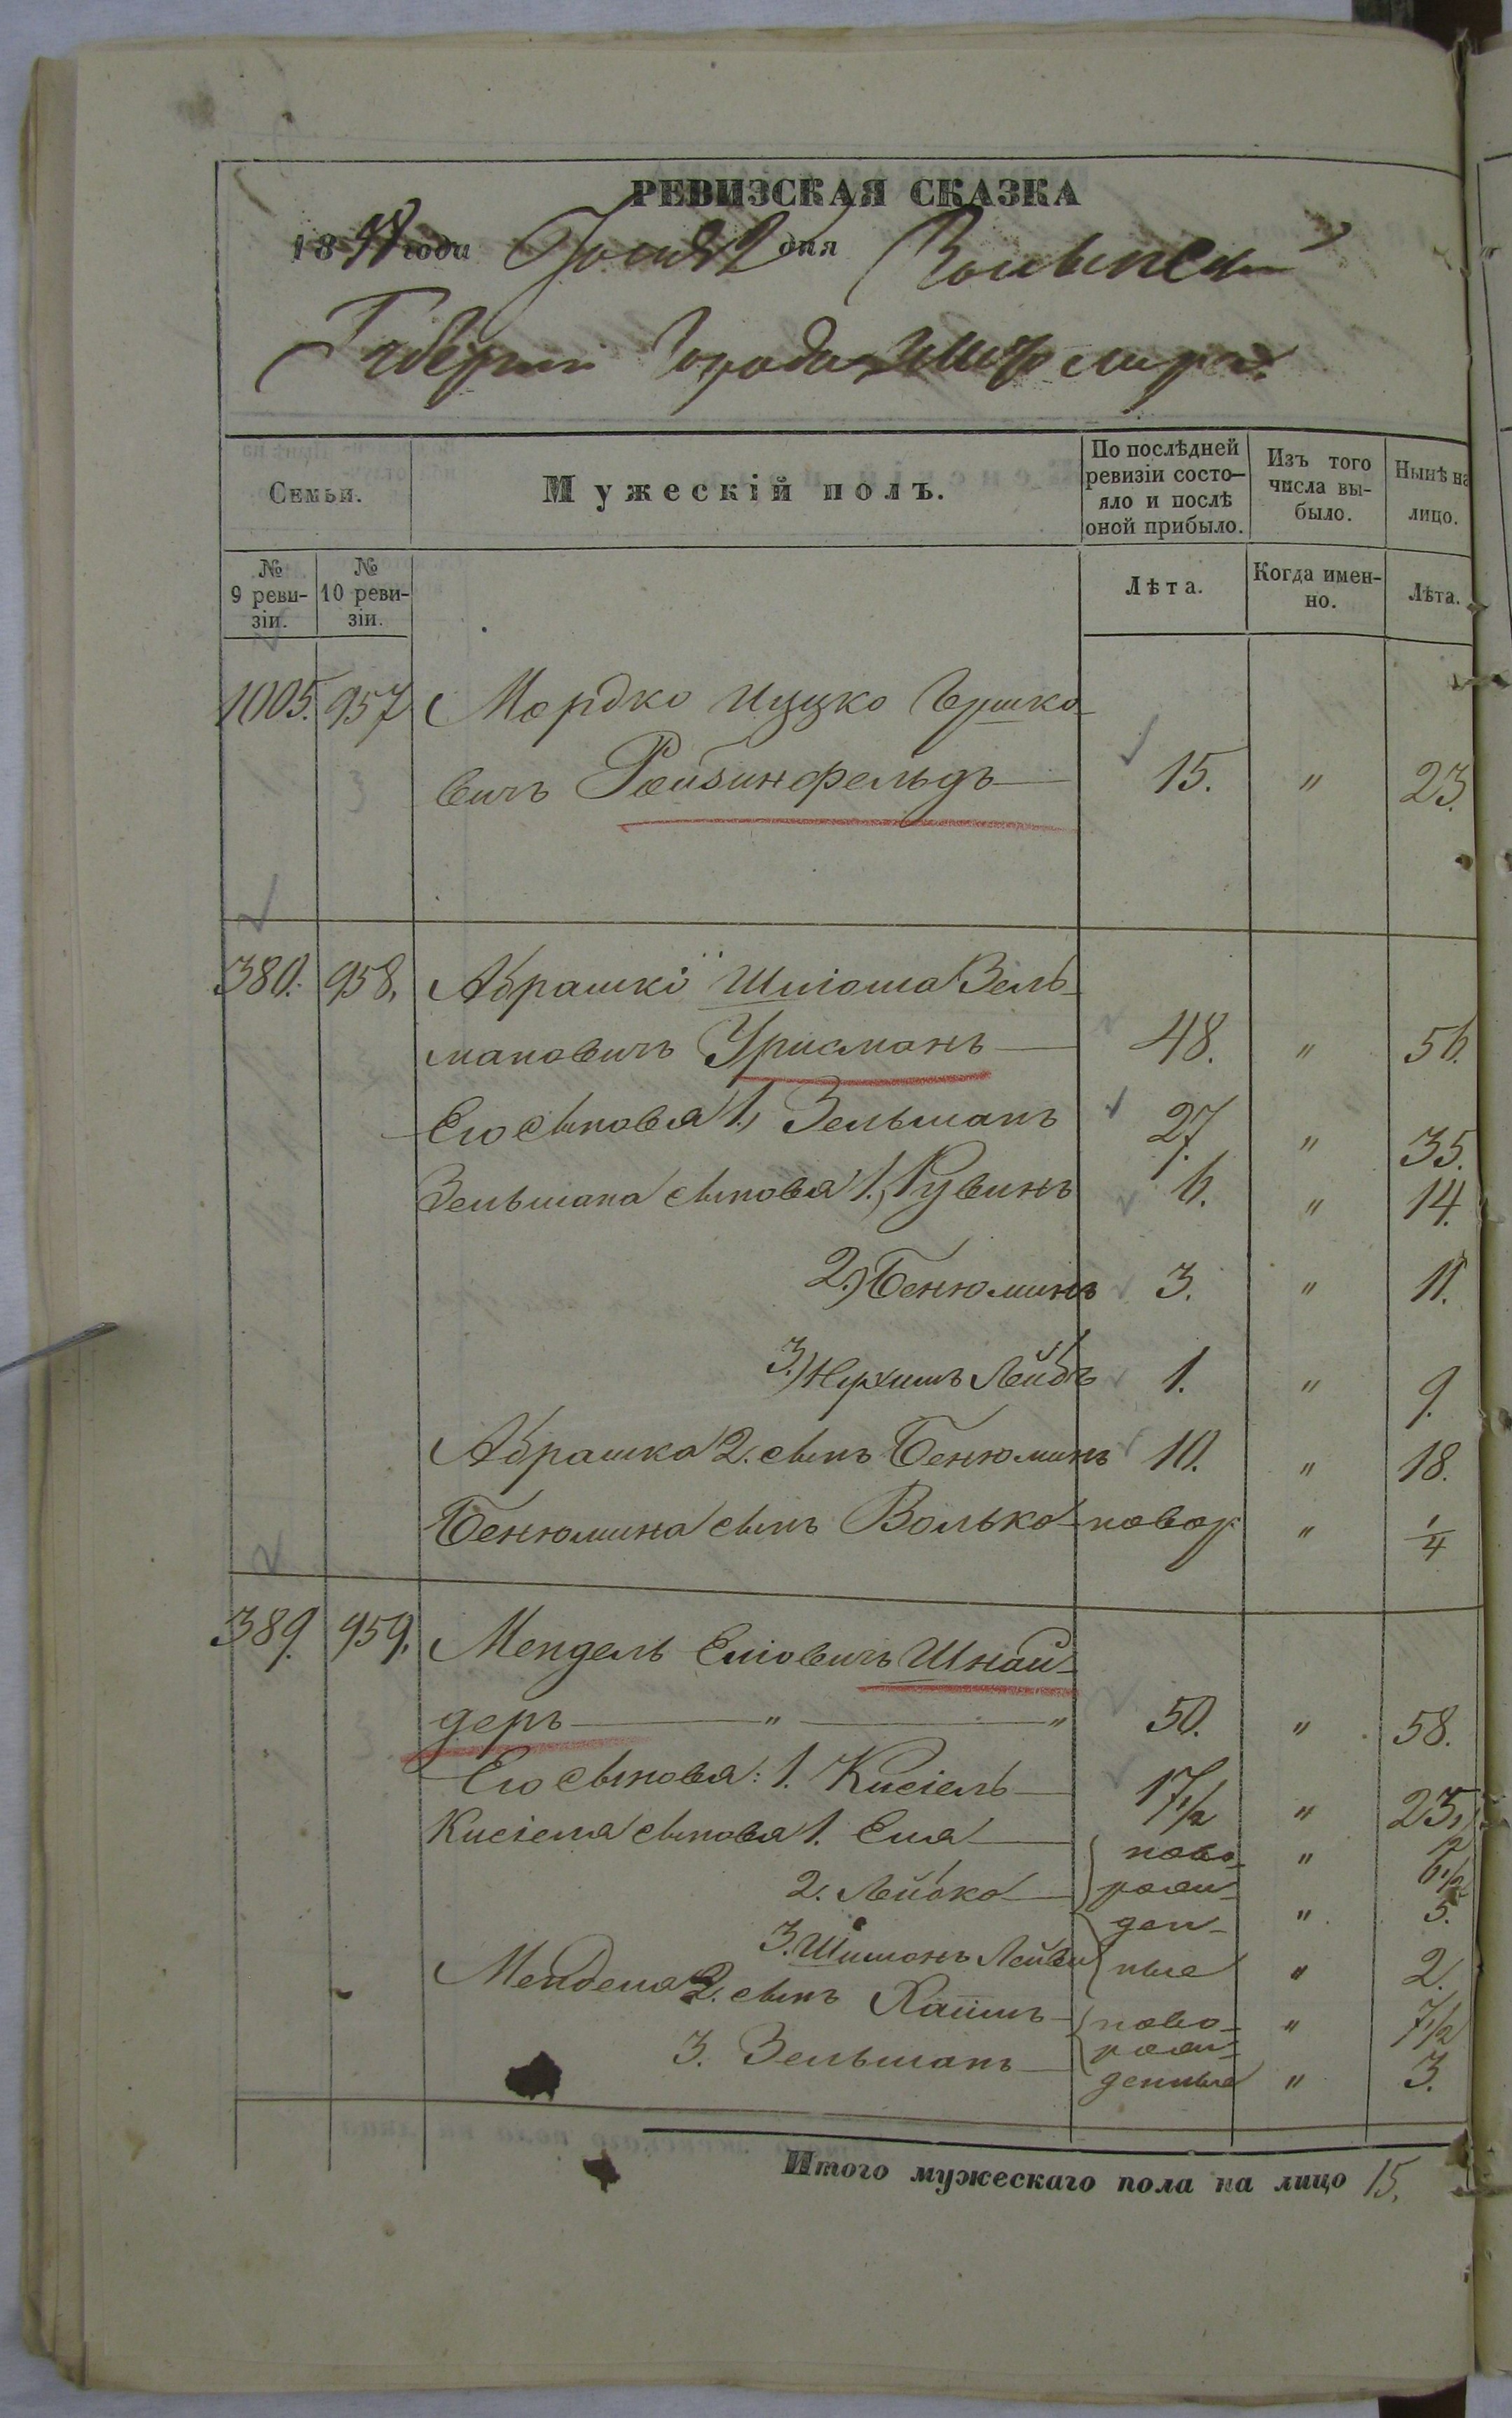 РЕВИЗСКАЯ СКАЗКА
1858 года дня Волынской
Губернии Города Житомира.
Семьи.
Мужескій полъ.
По послѣдней ревизіи состояло и послѣ оной прибыло.
Изъ того числа выбыло.
Нынѣ на лицо.
№ 9 ревизіи.
№ 10 ревизіи.
Лѣта.
Когда именно.
Лѣта.
1005. 957 Мордко Ицко Гершко-
вичъ Рейбинфельдъ 15. " 23.
380. 958. Абрашко Шліома Зель-
мановичъ Урисманъ 48. " 56.
Его сыновья 1., Зельманъ 27. " 35.
Зельмана сыновья 1., Рувинъ 6. " 14.
2.) Бенюминъ 3. " 11.
3.) Нухимъ Лейбъ 1. " 9.
Абрашка 2. сынъ Бенюминъ 10. " 18.
Бенюмина сынъ Волько новор " 1/4
389. 959. Мендель Еліовичъ Шнай-
деръ " " 50. " 58.
Его сыновья: 1. Кисіель 17 1/2 " 25 1/2
Кисіеля сыновья 1. Еля ново- " 6 1/2
2. Лейбко рож- " 5.
ден-
3. Шимонъ Лейви ные " 2.
Менделя 2. сынъ Хаимъ ново- " 7 1/2
рож-
3. Зельманъ денные " 3.
Итого мужескаго пола на лицо 15.